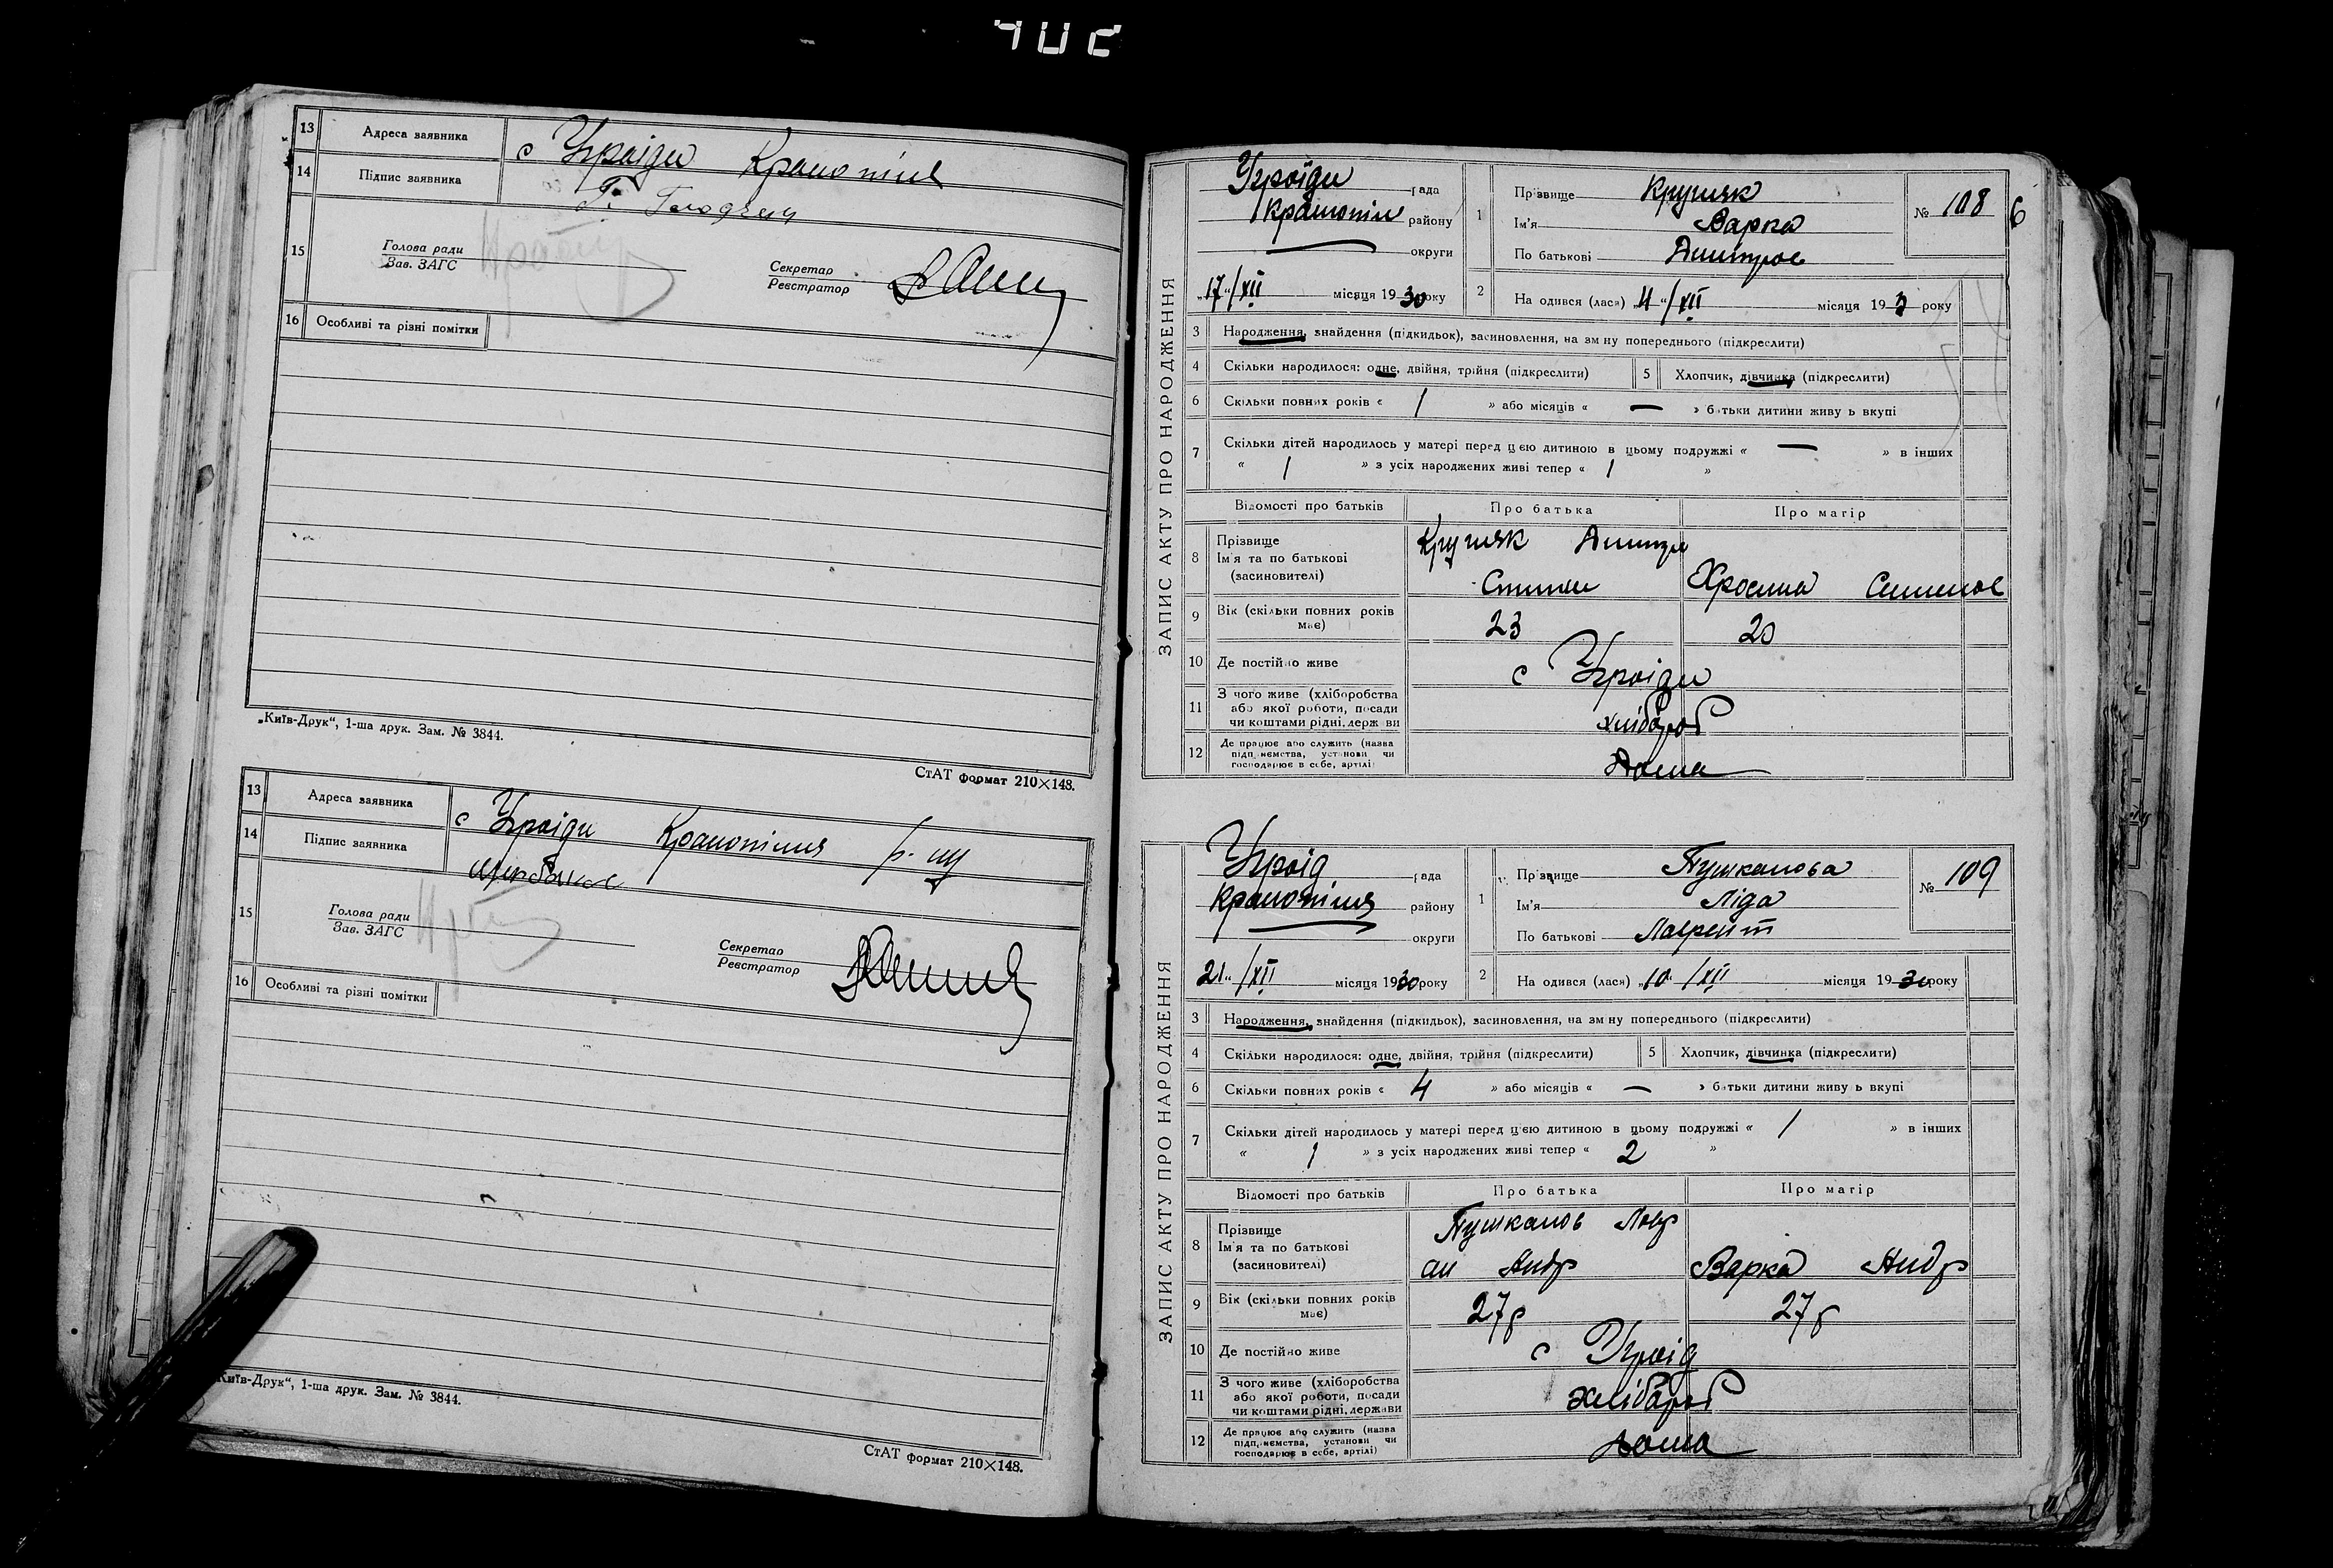 13 Адреса заявника с Угроїди Краснопілля
14 Підпис заявника Г.
15 Голова ради
Зав. ЗАГС
Секретар
Реєстратор
16 Особливі та різні помітки
„Київ-Друк“, 1-ша друк. Зам. № 3844.
СтАТ формат 210×148.
13 Адреса заявника с Угроїди Краснопілля р-ну
14 Підпис заявника
15 Голова ради
Зав. ЗАГС
Секретар
Реєстратор
16 Особливі та різні помітки
Київ-Друк“, 1-ша друк. Зам. № 3844.
СтАТ формат 210×148.
6
ЗАПИС АКТУ ПРО НАРОДЖЕННЯ
Угроїди рада
Краснопіл району
округи
„17“/XII місяця 1930 року
1 Прізвище Кругляк
Ім'я Варка
По батькові Дмитров
№ 108
2 На одився (лася) „4“/XII місяця 193 року
3 Народження, знайдення (підкидьок), засиновлення, на зм ну попереднього (підкреслити)
4 Скільки народилося: одне, двійня, трійня (підкреслити)
5 Хлопчик, дівчинка (підкреслити)
6 Скільки повних років « 1 » або місяців « — » батьки дитини живу ь вкупі
7 Скільки дітей народилось у матері перед цією дитиною в цьому подружжі « — » в інших
« 1 » з усіх народжених живі тепер « 1 »
Відомості про батьків Про батька Про матір
8 Прізвище
Ім'я та по батькові
(засиновителі)
Кругляк Дмитро
Семенов
9 Вік (скільки повних років має) 23 20
10 Де постійно живе с Угроїди
11 З чого живе (хліборобства
або якої роботи, посади
чи коштами рідні, держ ви
хлібороб
12 Де працює або служить (назва
підприємства, установи чи
господарює в себе, артілі)
дома
ЗАПИС АКТУ ПРО НАРОДЖЕННЯ
Угроїд рада
Краснопілля району
округи
21“/XII місяця 1930 року
1 Прізвище Пушкапова
Ім'я Ліда
По батькові Лаврент
№ 109
2 На одився (лася) „10“/XII місяця 1930 року
3 Народження, знайдення (підкидьок), засиновлення, на зм ну попереднього (підкреслити)
4 Скільки народилося: одне, двійня, трійня (підкреслити)
5 Хлопчик, дівчинка (підкреслити)
6 Скільки повних років « 4 » або місяців « — » батьки дитини живу ь вкупі
7 Скільки дітей народилось у матері перед цією дитиною в цьому подружжі « 1 » в інших
« 1 » з усіх народжених живі тепер « 2 »
Відомості про батьків Про батька Про матір
8 Прізвище
Ім'я та по батькові
(засиновителі)
Андр Варка Андр
9 Вік (скільки повних років має) 27р 27р
10 Де постійно живе с Угроїд
11 З чого живе (хліборобства
або якої роботи, посади
чи коштами рідні, держави
хлібороб
12 Де працює або служить (назва
підприємства, установи чи
господарює в себе, артілі)
дома